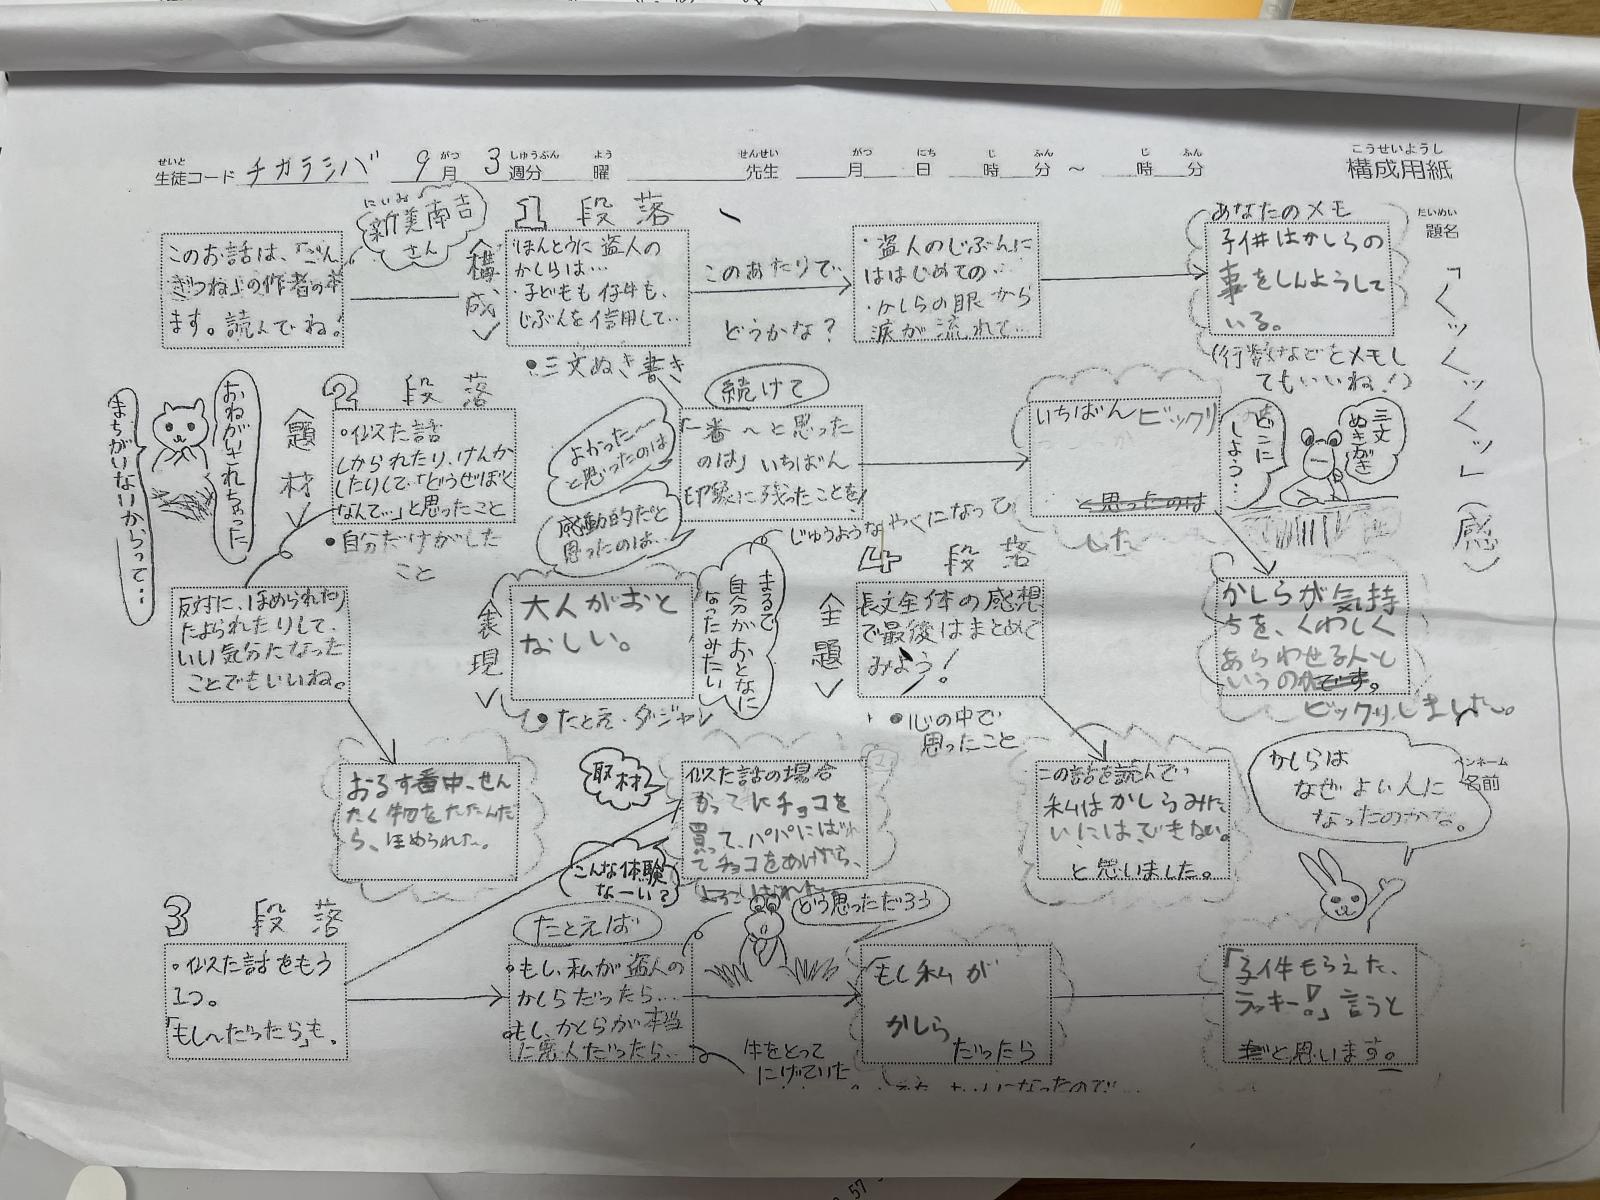 せいと
生徒コード チガラシバ 9月 3週分 曜 先生 月 日 時 分 ～ 時 分
こうせいようし
構成用紙
だいめい
題名
「くッくッくッ」(感)
1 段落
〈構成〉
にいみ
新美南吉
さん
このお話は、「ごん
ぎつね」の作者の本
ます。読んでね!
・ほんとうに盗人の
かしらは…
・子どもも仔牛も、
じぶんを信用して…
●三文ぬき書き
このあたりで…
どうかな?
・盗人のじぶんに
ははじめての…
・かしらの眼から
涙が流れて…
あなたのメモ
子供はかしらの
事をしんようして
いる。
(行数などとメモし
てもいいね!)
三文
ぬきがき
どこに
しよう…
続けて
「一番～と思った
のは」いちばん
印象に残ったことを
よかった～
と思ったのは
感動的だと
思ったのは…
いちばんビックリ
した
と思ったのは
かしらが気持
ちを、くわしく
あらわせる人と
いうのがです。
ビックリしました。
2 段落
〈題材〉
おねがいされちゃった
まちがいないからって…
・似た話
しかられたり、けんか
したりして、「どうせぼく
なんて…」と思ったこと
●自分だけがした
こと
反対に、ほめられたり
たよられたりして、
いい気分になった
ことでもいいね。
おるす番中、せん
たく物をたたんだ
ら、ほめられた。
〈表現〉
大人がおと
なしい。
●たとえ・ダジャレ
じゅうようなやくになって
まるで
自分がおとなに
なったみたい
4 段落
〈主題〉
長文全体の感想
で最後はまとめて
みよう!
●心の中で
思ったこと
この話を読んで、
私はかしらみた
いにはできない。
と思いました。
かしらは
なぜよい人に
なったのかな。
ペンネーム
名前
3 段落
・似た話をもう
1つ。
「もし～だったら」も。
取材
こんな体験
なーい?
似た話の場合
かってにチョコを
買って、パパにばれ
てチョコをあげたら、
たとえば
・もし、私が盗人の
かしらだったら…
・もし、かしらが本当
に悪人だったら…
牛をとって
にげていた
どう思っただろう
「もし私が
かしら
だったら
「子供もらえた、
ラッキー!」言うと
だと思います。
になったので…